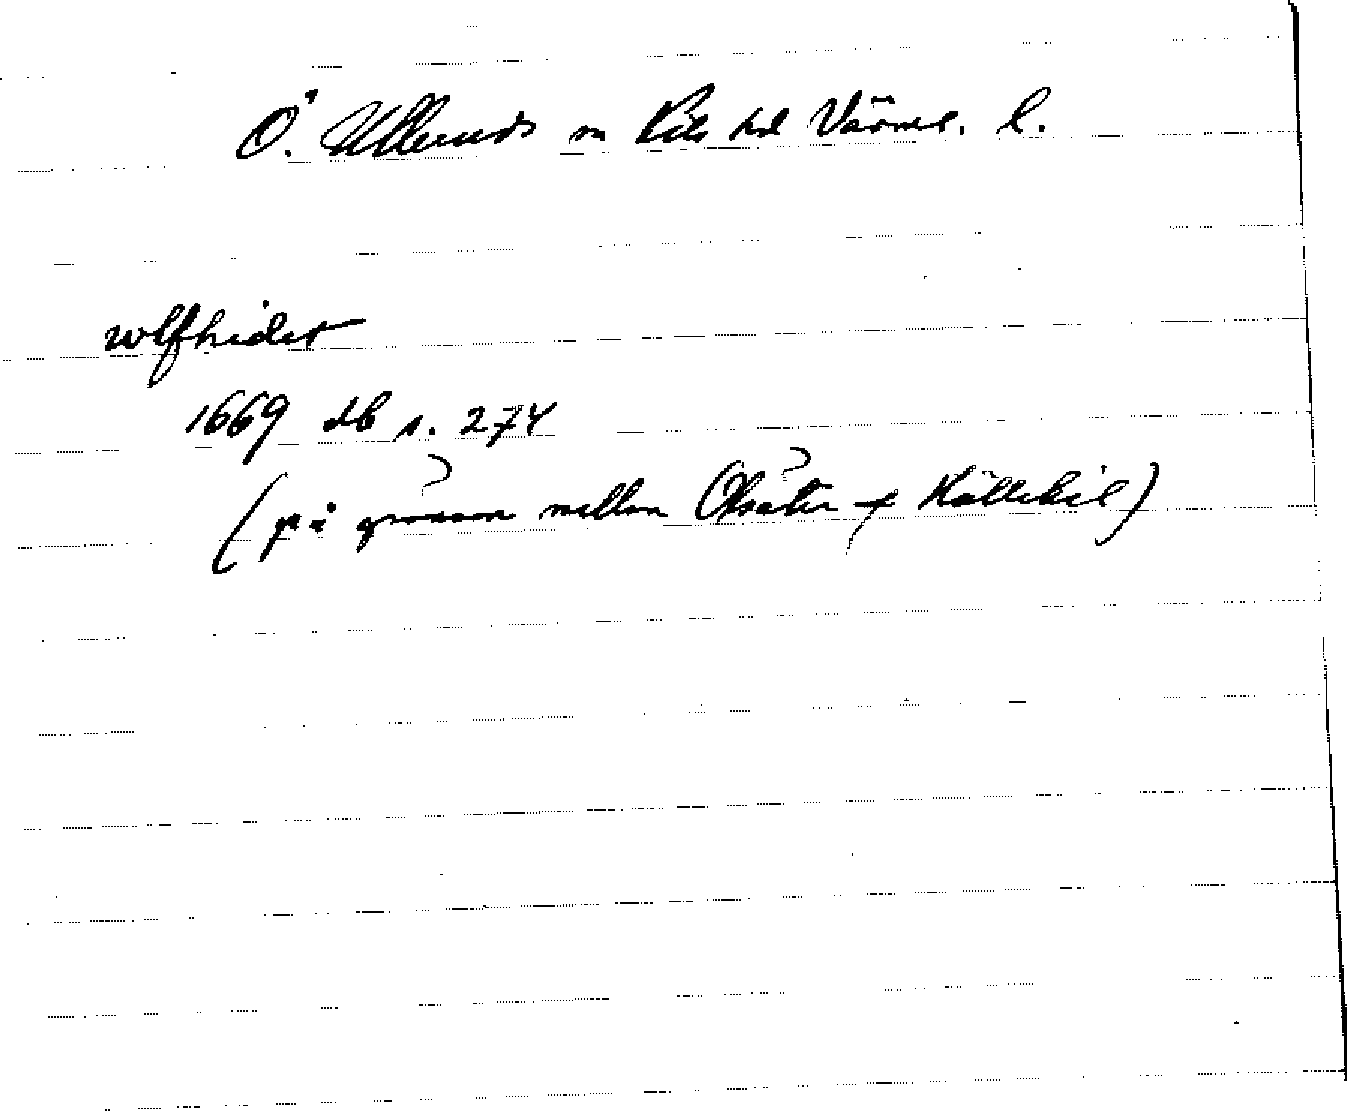 Ö. Ullerud sn Kils hd Värml. l.
wlfhidet
1669 db s. 274
(på gränsen mellan Olsäter ok Källekil)